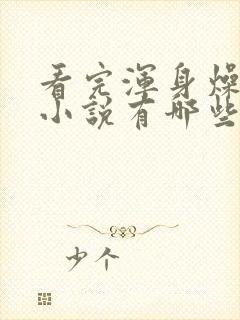 看完浑身燥
小说有哪些
少个